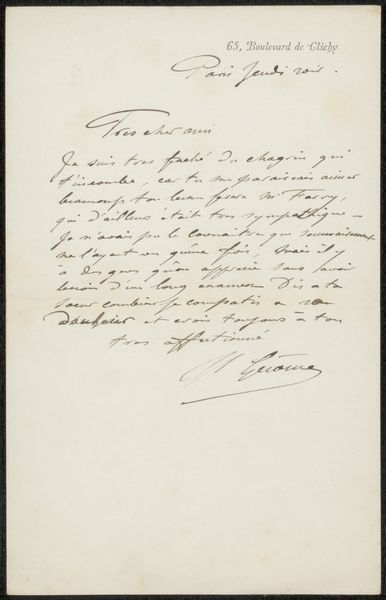 65, Boulevard de Clichy
Paris Jeudi soir.
Tres cher ami
Je suis tres faché du chagrin qui
t'incombe, car tu me paraissais aimer
beaucoup ton beau frere Mr
qui d'ailleurs était tres sympathique –
Je n'avais pu le connaitre que sommairement
ne l'ayant vu qu'une fois, mais il y
a des gens qu'on apprecie sans avoir
besoin d'un long examen Dis a ta
sœur combien je compatis a sa
douleur et crois toujours à ton
tres affectionné
Gérome